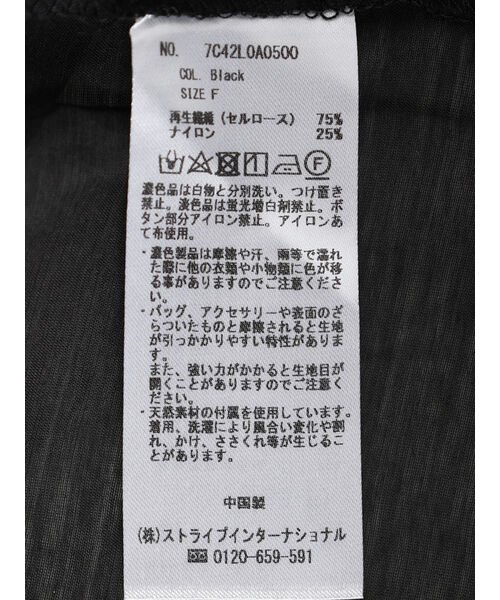 NO. 7C42L0A0500
COL. Black
SIZE F
再生繊維（セルロース） 75%
ナイロン 25%
濃色品は白物と分別洗い。つけ置き
禁止。淡色品は蛍光増白剤禁止。ボ
タン部分アイロン禁止。アイロンあ
て布使用。
・濃色製品は摩擦や汗、雨等で濡れ
た際に他の衣類や小物類に色が移
る事がありますのでご注意くださ
い。
・バッグ、アクセサリーや表面のざ
らついたものと摩擦されると生地
が引っかかりやすい特性がありま
す。
また、強い力がかかると生地目が
開くことがありますのでご注意く
ださい。
・天然素材の付属を使用しています。
着用、洗濯により風合い変化や割
れ、かけ、ささくれ等が生じるこ
とがあります。
中国製
(株)ストライプインターナショナル
0120-659-591